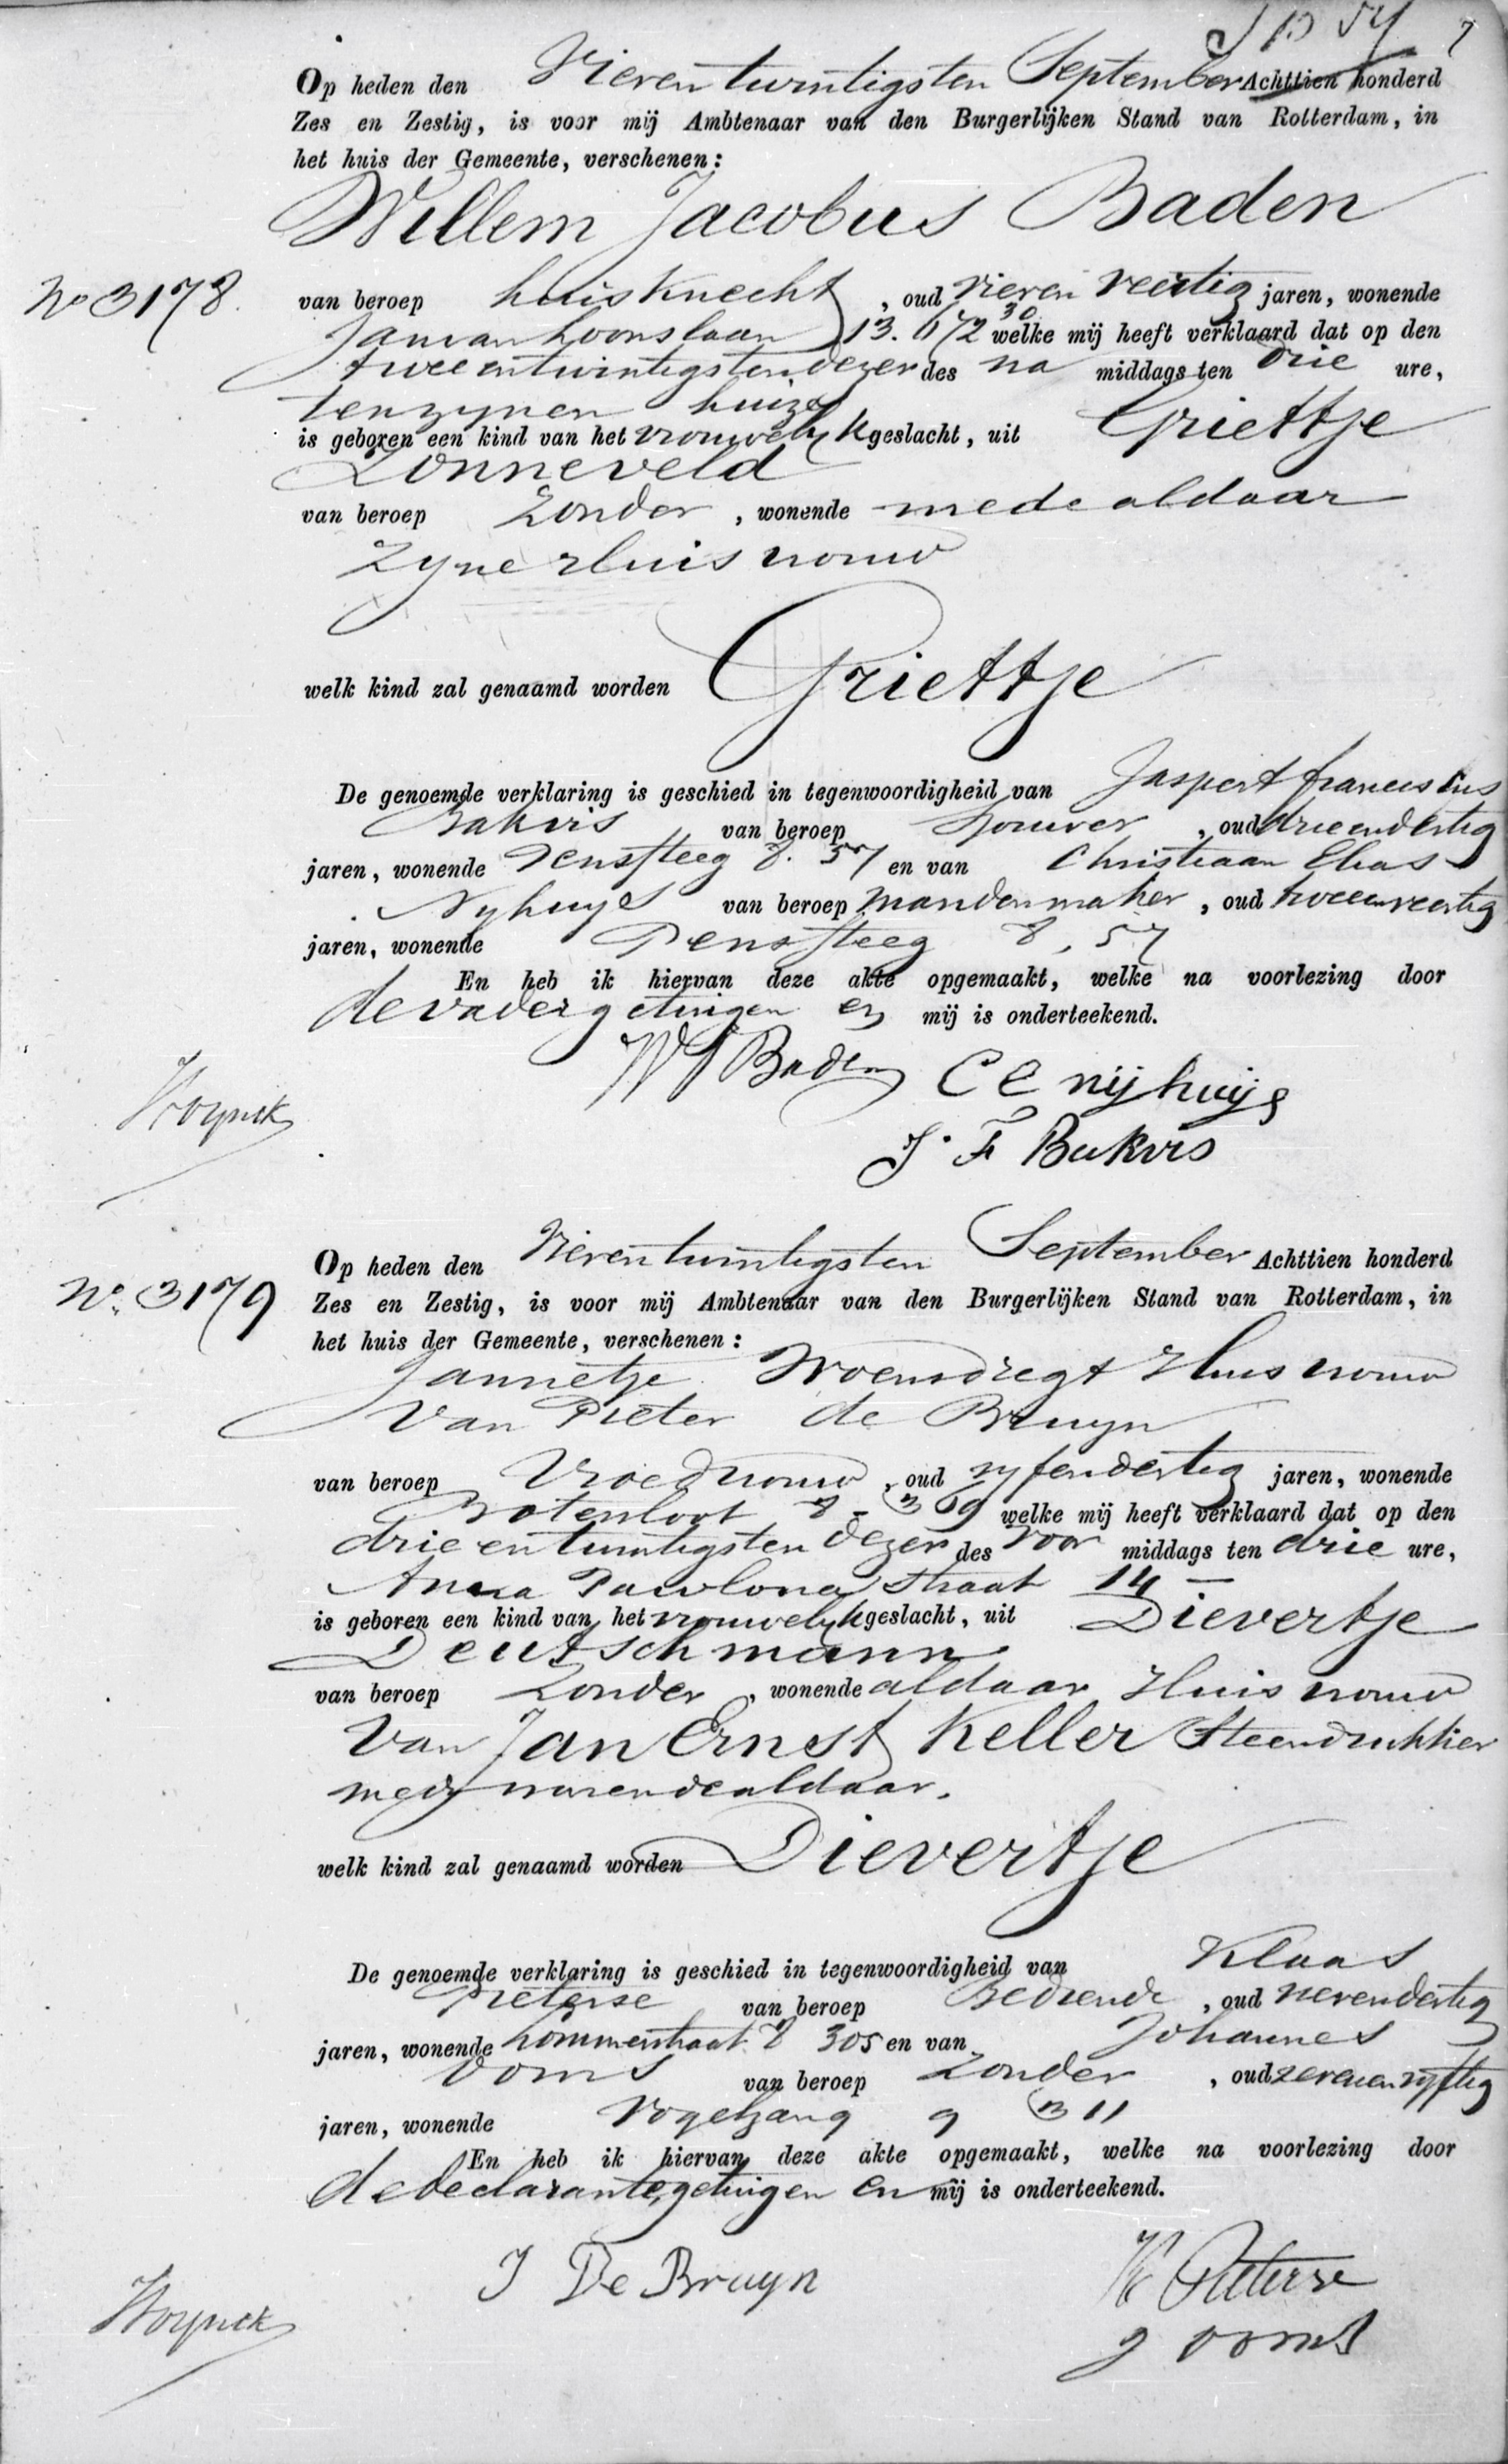 7
Op heden den Vierentwintigsten September Achttien honderd
Zes en Zestig, is voor mij Ambtenaar van den Burgerlijken Stand van Rotterdam, in
het huis der Gemeente, verschenen:
Willem Jacobus Baden
No 3178.
van beroep huisknecht, oud vieren veertig jaren, wonende
Jan van Loonslaan 13. welke mij heeft verklaard dat op den
tweeentwintigsten dezer des na middags ten drie ure,
ten zynen huize
is geboren een kind van het vrouwelyk geslacht, uit Griettje
Zonneveld
van beroep Zonder, wonende mede aldaar
Zyne Huisvrouw
welk kind zal genaamd worden Griettje
De genoemde verklaring is geschied in tegenwoordigheid van Jaspert franciscus
Bakvis van beroep, oud drieendertig
jaren, wonende Penssteeg 8. 57 en van Christiaan Elias
Nyhuys van beroep mandenmaker, oud tweeenveertig
jaren, wonende Penssteeg 8, 57
En heb ik hiervan deze akte opgemaakt, welke na voorlezing door
de vader getuigen en mij is onderteekend.
WJ Baden C E nijhuijs
J. F Bakvis
No. 3179
Op heden den Vierentwintigsten September Achttien honderd
Zes en Zestig, is voor mij Ambtenaar van den Burgerlijken Stand van Rotterdam, in
het huis der Gemeente, verschenen:
Jannetje Woensdregt Huisvrouw
Van Pieter de Bruyn
van beroep Vroedvrouw, oud vyfendertig jaren, wonende
Botersloot 8 - 369 welke mij heeft verklaard dat op den
drieentwintigsten dezer des voor middags ten drie ure,
Anna Paulona straat 14 —
is geboren een kind van het vrouwelyk geslacht, uit Dievertje
Deutschmann
van beroep Zonder, wonende aldaar Huisvrouw
Van Jan Ernst Keller Steendrukker
mede wonende aldaar.
welk kind zal genaamd worden Dievertje
De genoemde verklaring is geschied in tegenwoordigheid van Klaas
Pieterse van beroep Bediende, oud vierendertig
jaren, wonende Lommerstraat 8 305 en van Johannes
Ooms van beroep Zonder, oud zevenenvyftig
jaren, wonende Vogelzang 9 311
En heb ik hiervan deze akte opgemaakt, welke na voorlezing door
de declarante, getuigen en mij is onderteekend.
J De Bruyn K Pieterse
J Ooms